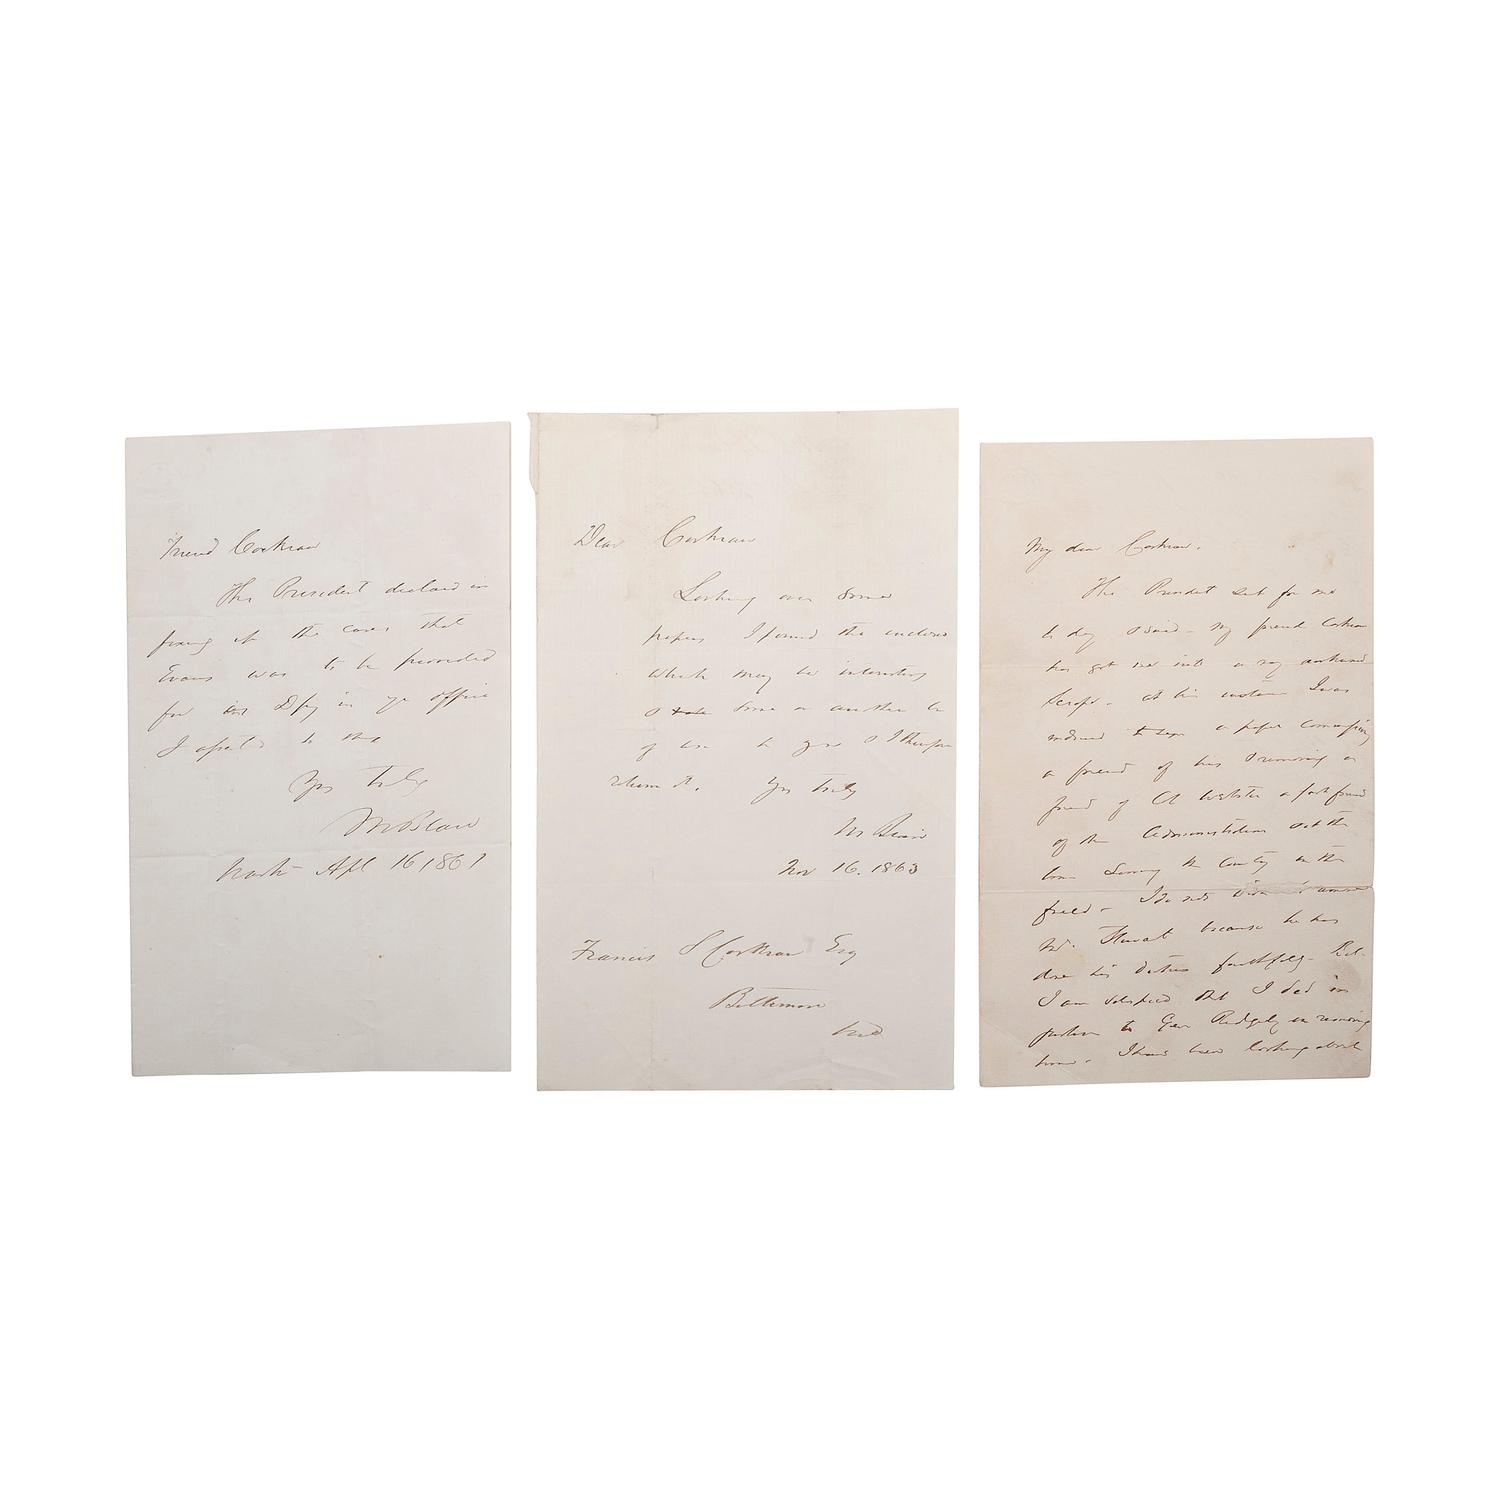 Friend Corkran
The President declared in
fixing up the cases that
Evans was to be provided
for as Dpy in yr office
I assented to this
Yrs truly
M Blair
Wash Apl 16 1861
Dear Corkran
Looking over some
papers I found the enclosed
which may be interesting
& some or another be
of use to you & I therefore
return it. Yrs truly
M Blair
Nov 16. 1863
Francis S Corkran Esq
Baltimore
Md
My dear Corkran.
The President sent for me
to day & said - My friend Corkran
has got me into a very awkward
scrape. At his instance I was
induced to sign a paper commissioning
a friend of his & removing a
friend of Webster a fast friend
of the Administration at the
time Leaving the County in the
field - I do not wish to remove
Mr. Stewart because he has
done his duties faithfully - But
I am satisfied that I did in
justice to Gen Ridgely in removing
him. I have been looking about